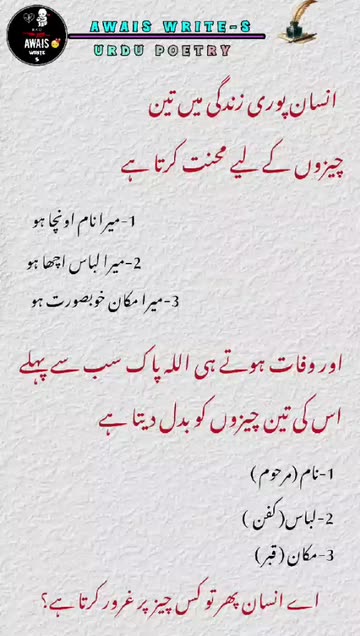 AWAIS WRITE-S
URDU POETRY
AWAIS
WRITE
S
انسان پوری زندگی میں تین
چیزوں کے لیے محنت کرتا ہے
1-میرا نام اونچا ہو
2-میرا لباس اچھا ہو
3-میرا مکان خوبصورت ہو
اور وفات ہوتے ہی اللہ پاک سب سے پہلے
اس کی تین چیزوں کو بدل دیتا ہے
1-نام (مرحوم)
2-لباس (کفن)
3-مکان (قبر)
اے انسان پھر تو کس چیز پر غرور کرتا ہے؟